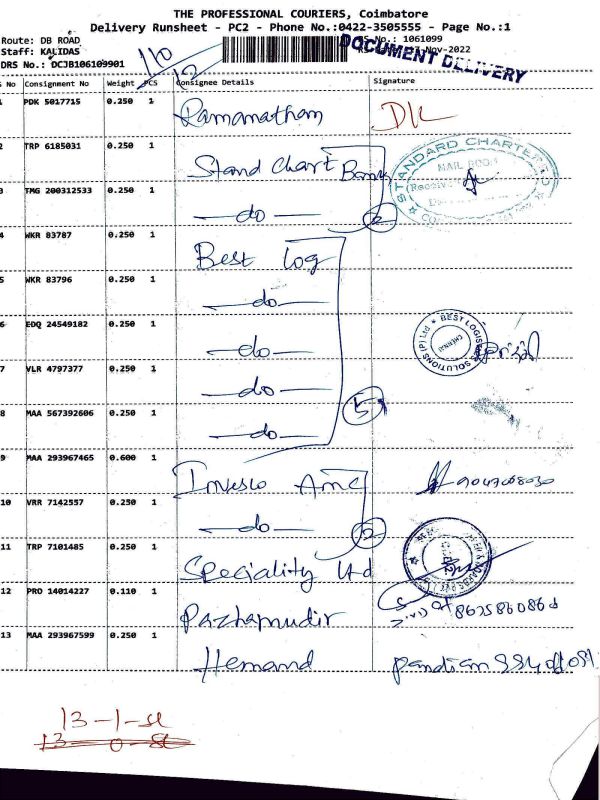 THE PROFESSIONAL COURIERS, Coimbatore
Delivery Runsheet - PC2 - Phone No.:0422-3505555 - Page No.:1
Route: DB ROAD No.: 1061099
Staff: KALIDAS Nov-2022
DRS No.: DCJB106109901
DOCUMENT DELIVERY
110
12
s No Consignment No Weight PCS Consignee Details Signature
1 PDK 5017715 0.250 1 Ramanatham
2 TRP 6185031 0.250 1 Stand Chart Bank
STANDARD CHARTERED
MAIL ROOM
3 TMG 200312533 0.250 1 —do— 2
4 WKR 83787 0.250 1 Best Log
5 WKR 83796 0.250 1 —do—
6 EDQ 24549182 0.250 1 —do—
BEST LOGISTICS SOLUTIONS (P) Ltd
7 VLR 4797377 0.250 1 —do—
8 MAA 567392606 0.250 1 —do— 5
9 MAA 293967465 0.600 1 Invesco Amc
10 VRR 7142557 0.250 1 —do— 2
11 TRP 7101485 0.250 1 Speciality Ltd
12 PRO 14014227 0.110 1 Pazhamudir
13 MAA 293967599 0.250 1 Hemand pandian
13-1-sl
13-0-sl